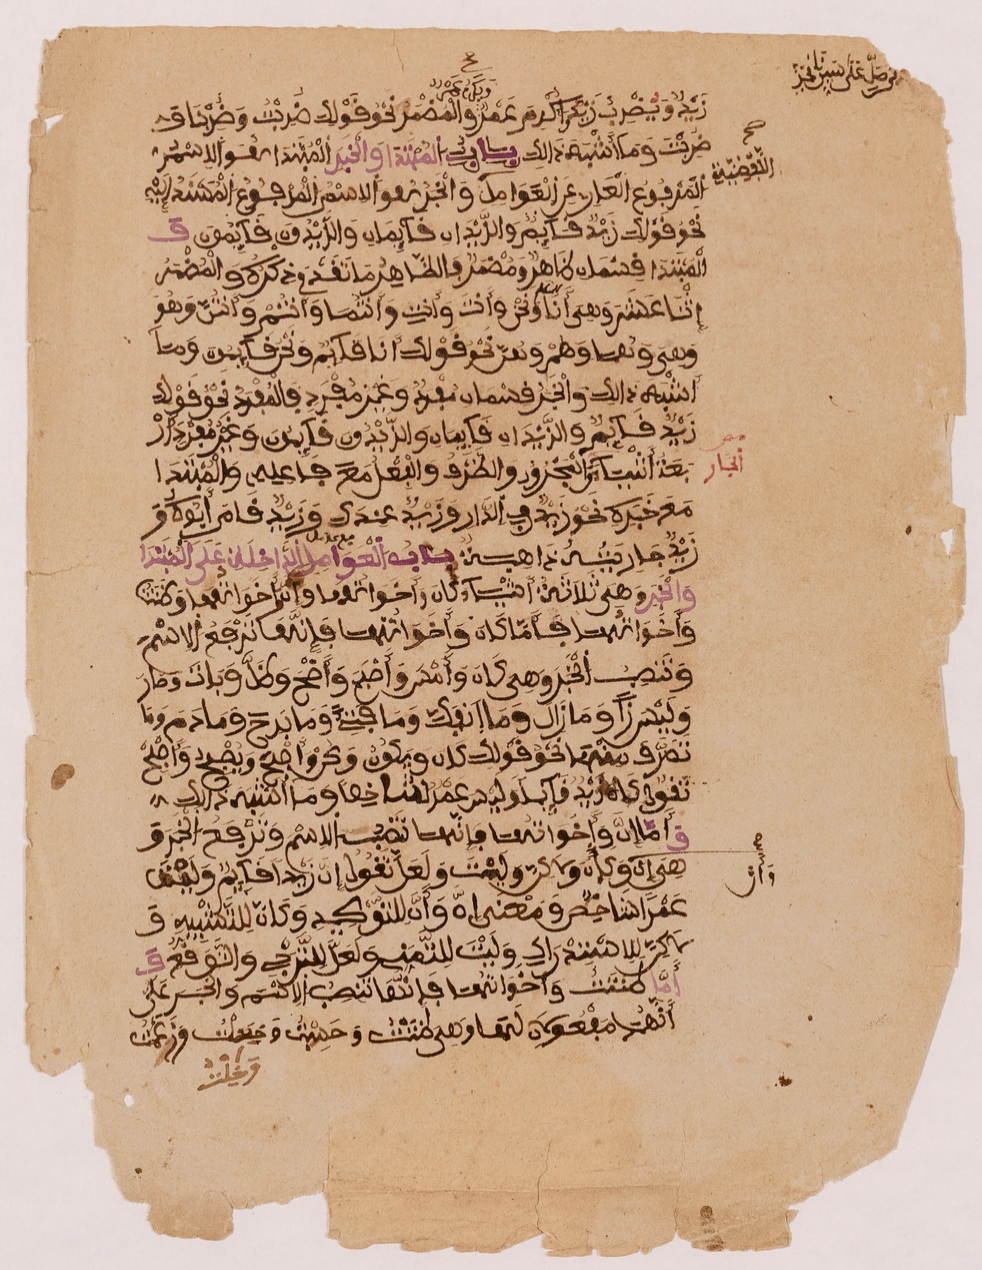 صل على سيدنا محمد
ويكرم عمرو
زيد ويضرب زيد وأكرم عمرو والمضمر نحو قولك ضربت وضربنا و
ضربت وما أشبه ذالك باب المبتدا والخبر المبتدا هو الاسم
اللفظية
المرفوع العاري عن العوامل والخبر هو الاسم المرفوع المسند إليه
نحو قولك زيد قايم والزيدان قايمان والزيدون قايمون و
المبتدا قسمان ظاهر ومضمر فالظاهر ما تقدم ذكره والمضمر
إثنا عشر وهي أنا ونحن وأنت وأنت وأنتما وأنتم وأنتن وهو
وهي وهما وهم وهن نحو قولك أنا قايم ونحن قايمون وما
أشبه ذالك والخبر قسمان مفرد وغير مفرد فالمفرد نحو قولك
زيد قايم والزيدان قايمان والزيدون قايمون وغير مفرد أر
الجار
بعة أشياء والمجرور والظرف والفعل مع فاعله والمبتدا
مع خبره نحو زيد في الدار وزيد عندك وزيد قام أبوه و
زيد جاريته ذاهبة باب العوامل الداخلة على المبتدا
والخبر وهي ثلاثة أشياء كان وأخواتها وإن وأخواتها وظننت
وأخواتها فأما كان وأخواتها فإنها ترفع الاسم
وتنصب الخبر وهي كان وأمسى وأصبح وأضحى وظل وبات وصار
وليس وما زال وما انفك وما فتئ وما برح وما دام وما
تصرف منها نحو قولك كان ويكون وكن وأصبح ويصبح وأصبح
تقول كان زيد قايما وليس عمر شاخصا وما أشبه ذالك
وأما إن وأخواتها فإنها تنصب الاسم وترفع الخبر و
هي إن وكأن ولاكن وليت ولعل تقول إن زيدا قايم وليت
وأن
عمرا شاخص ومعنى إن وأن للتوكيد وكأن للتشبيه و
لاكن للاستدراك وليت للتمني ولعل للترجي والتوقع و
أما ظننت وأخواتها فإنها تنصب الاسم والخبر على
أنهما مفعولان لها وهي ظننت وحسبت وجعلت وزعمت
وخلت